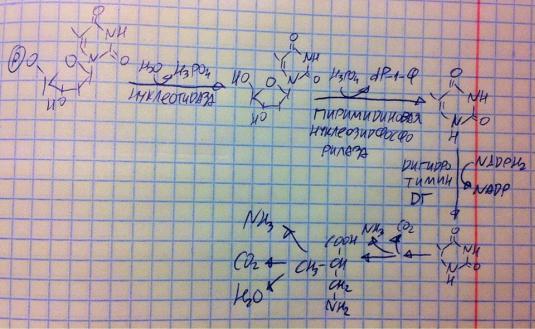 O
NH
N
O
Ф
O
HO
H2O
H3PO4
НУКЛЕОТИДАЗА
O
NH
N
O
HO
O
HO
H3PO4
dP-1-Ф
ПИРИМИДИНОВАЯ
НУКЛЕОЗИДФОСФО
РИЛАЗА
O
NH
N
O
H
ДИГИДРО
ТИМИН
ДГ
NADPH2
NADP
O
NH
N
O
H
NH3
CO2
COOH
CH3-CH
CH2
NH2
NH3
CO2
H2O